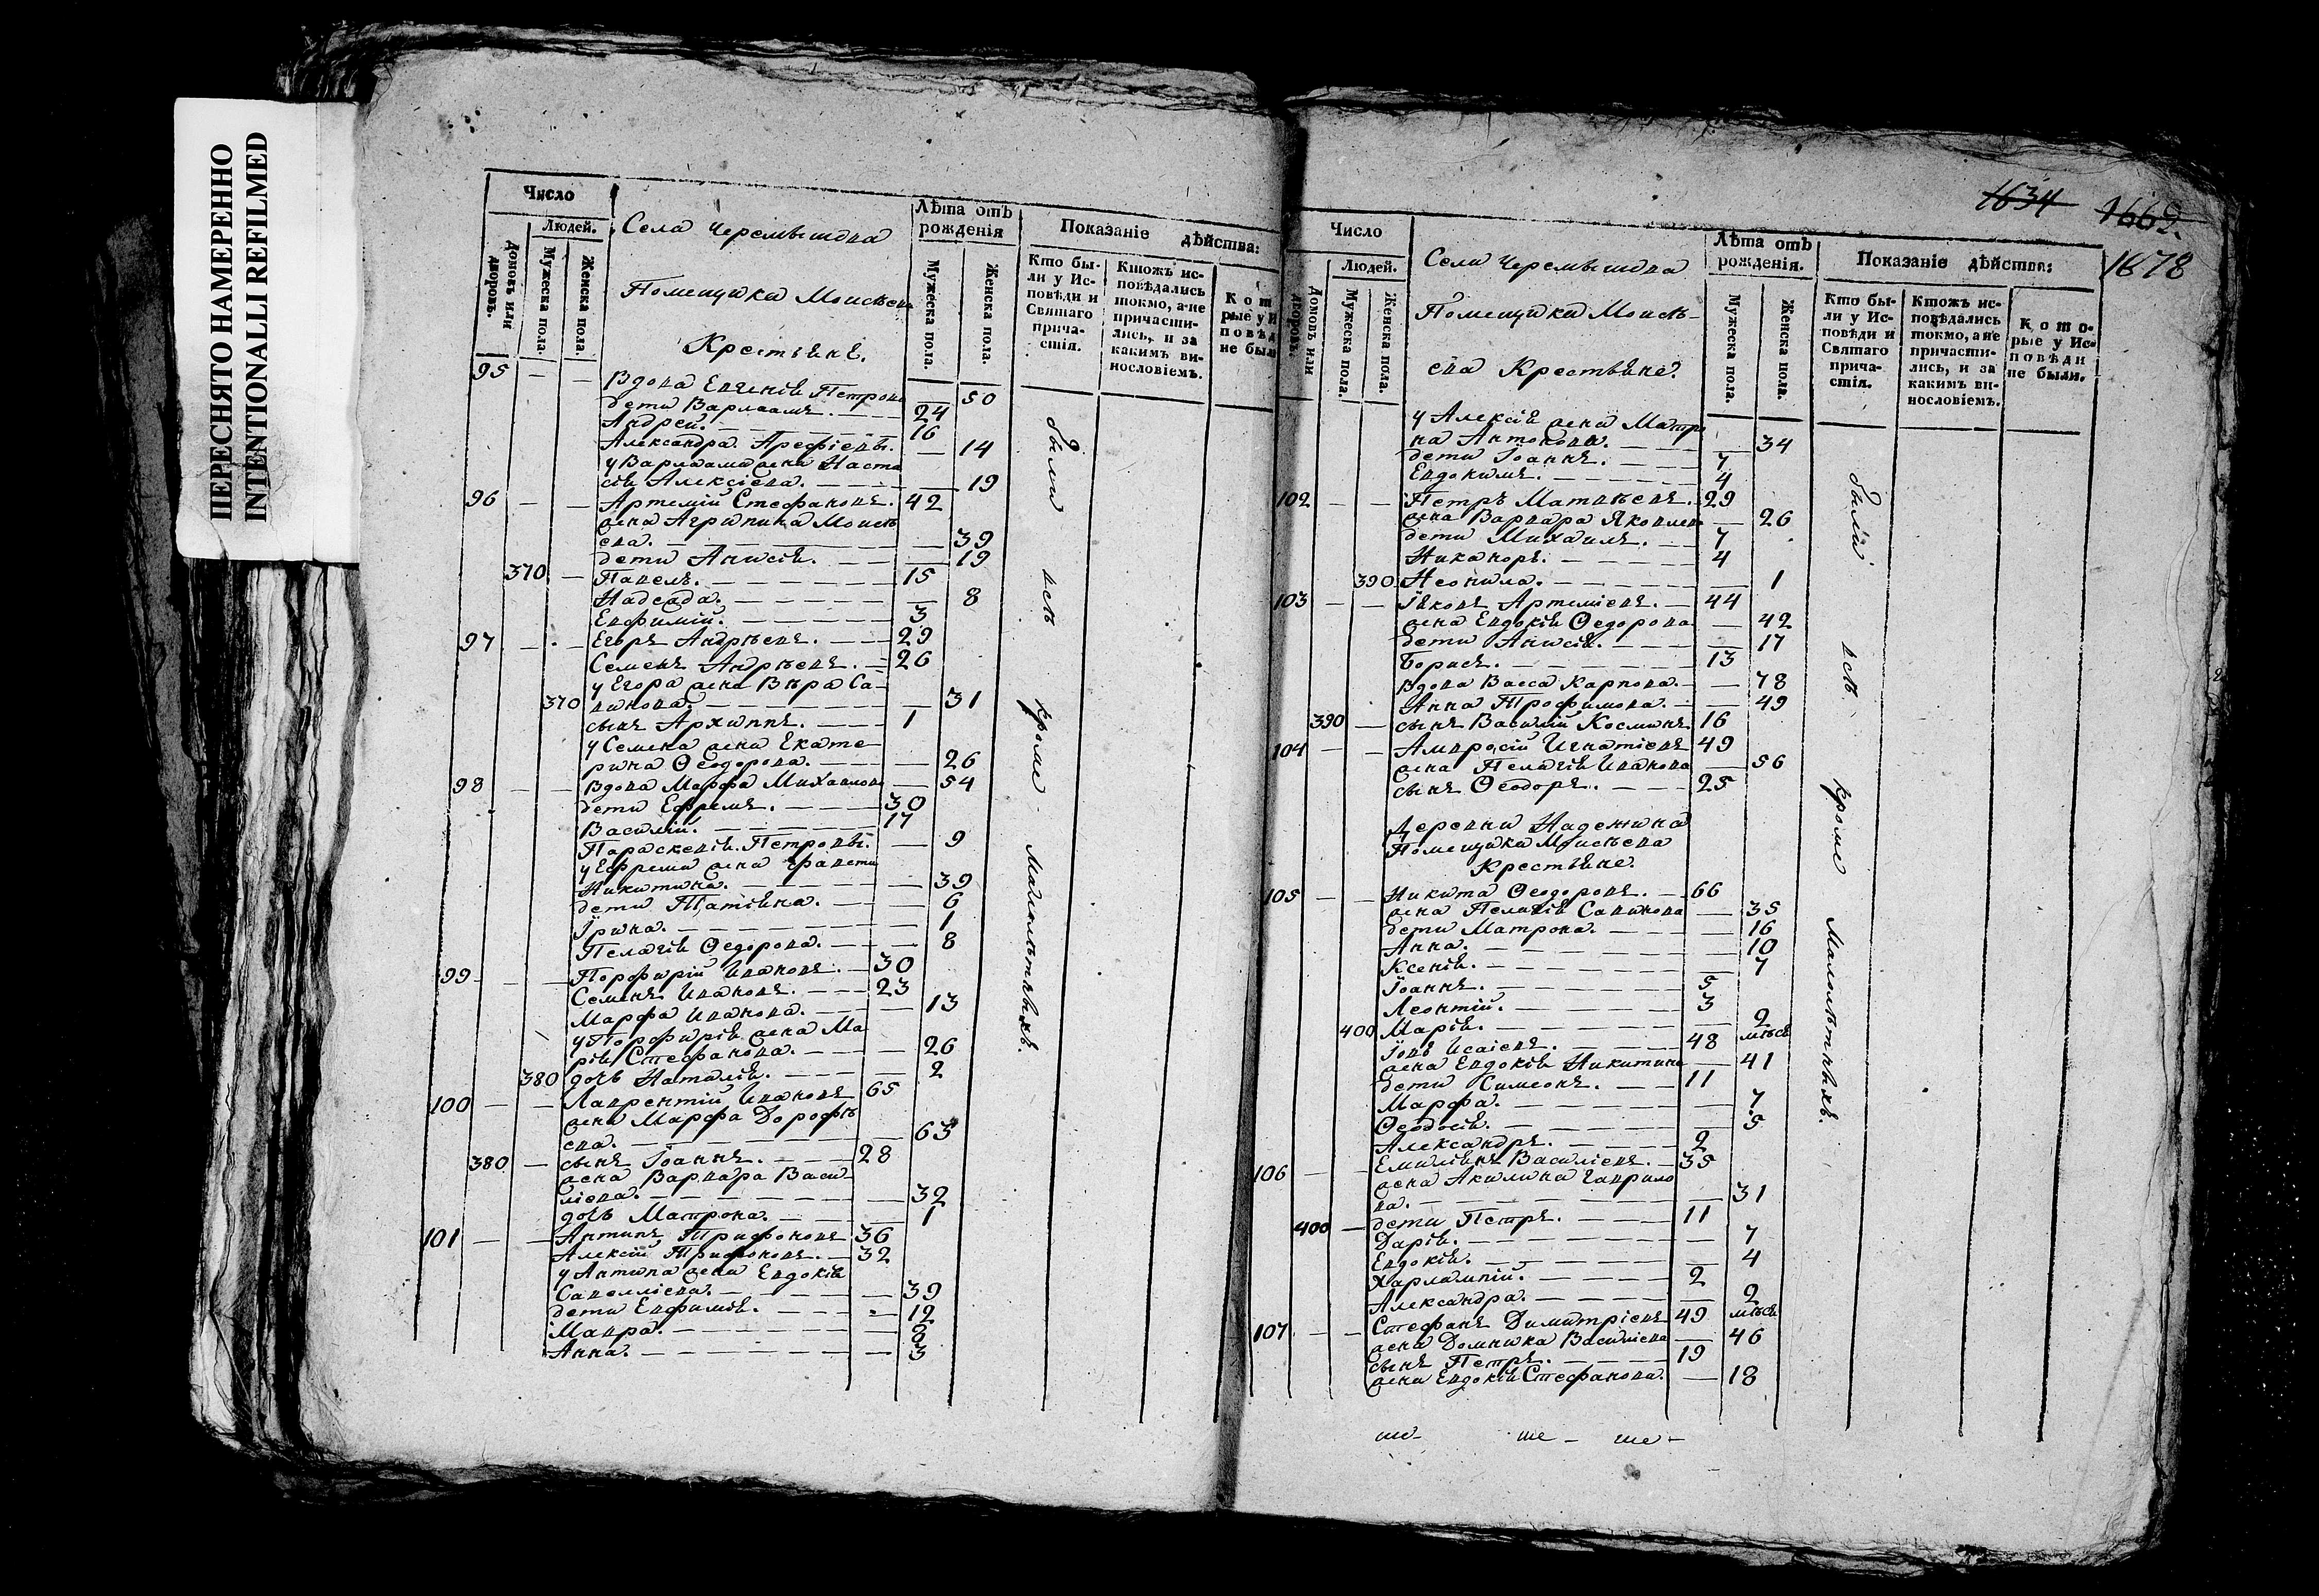 ПЕРЕСНЯТО НАМЕРЕННО
INTENTIONALLI REFILMED
Число
Людей.
Домовъ или дворовъ.
Мужеска пола.
Женска пола.
Села Черемышева
Помещика Моисѣева
Крестьяне.
Лѣта отъ рожденія
Мужеска пола.
Женска пола.
Показаніе дѣйства:
Кто бы-
ли у Ис-
повѣди и
Святаго
прича-
стія.
Ктожъ ис-
повѣдались
токмо, а не
причасти-
лись, и за
какимъ ви-
нословіемъ.
Кот
рые у И
повѣд
не были
95 — — Вдова Евгенія Петрова — 50
дети Варлаамъ. — 24
Андрей. — 16
Александра Арефіевы. — 14
у Варлаама жена Наста
сія Алексіева. — 19
96 — — Артемій Стефановъ. 42
жена Агрипина Моисѣ
ева. — 39
дети Анисія. — 19
370 — Павелъ. — 15
Надежда. — 8
Евфимій. — 3
97 — — Егоръ Андрѣевъ. — 29
Семенъ Андрѣевъ. — 26
у Егора жена Вѣра Са-
370 винова. — 31
сынъ Архиппъ. — 1
у Семена жена Екате-
рина Ѳеодорова. — 26
98 — — Вдова Марфа Михаилова — 54
дети Ефремъ. — 30
Василій. — 17
Параскевія Петровы. — 9
у Ефрема жена
Никитина. — 39
дети Татіана. — 6
Ірина. — 1
Пелагія Ѳедорова. — 8
99 — — Порфирій Ивановъ. — 30
Семенъ Ивановъ. — 23
Марфа Иванова. — 13
у Порфирія жена Ма
рія Стефанова. — 26
380 дочь Наталія. — 2
100 — — Лаврентій Ивановъ 65
жена Марфа Дорофѣ
ева. — 63
380 — сынъ Іоаннъ. — 28
жена Варвара Васи-
ліева. — 32
дочь Матрона. — 1
101 — — Антипъ Трифоновъ 36
Алексій Трифоновъ. — 32
у Антипа жена Евдокія
Савелліева. — 39
дети Евфимія. — 12
Мавра. — 8
Анна. — 3
были всѣ кроме малолѣтныхъ.
1634 1662.
1678
Число
Людей.
Домовъ или дворовъ.
Мужеска пола.
Женска пола.
Села Черемышева
Помещика Моисѣ-
ева Крестьяне.
Лѣта отъ рожденія.
Мужеска пола.
Женска пола.
Показаніе дѣйства:
Кто бы-
ли у Ис-
повѣди и
Святаго
прича-
стія.
Ктожъ ис-
повѣдались
токмо, а не
причасти-
лись, и за
какимъ ви-
нословіемъ.
Кото-
рые у Ис-
повѣди
не были.
у Алексія жена Матро
на Антонова. — 34
дети Іоаннъ. — 7
Евдокимъ. — 4
102 — — Петръ Матвѣевъ. 29
жена Варвара Яковлева — 26
дети Михаилъ. — 7
Никаноръ. — 4
390 Неонила. — 1
103 — — Іаковъ Артеміевъ. — 44
жена Евдокія Ѳедорова — 42
дети Анисія. — 17
Борисъ. — 13
Вдова Васса Карпова. — 78
Анна Трофимова. — 49
390 — сынъ Василій Косминъ 16
104 — — Амвросій Игнатіевъ 49
жена Пелагія Иванова — 56
сынъ Ѳеодоръ. — 25
Деревни Надежина
Помещика Моисѣева
Крестьяне.
105 — — Никита Ѳеодоровъ. — 66
жена Пелагія Савинова — 35
дети Матрона. — 16
Анна. — 10
Ксенія. — 7
Іоаннъ. — 5
Леонтій. — 3
400 Марія. — 2 мѣся
Іовъ Исаіевъ. — 48
жена Евдокія Никитина — 41
дети Симеонъ. — 11
Марфа. — 7
Ѳеодосія. — 5
Александръ. — 2
106 — — Емиліанъ Василіевъ. — 35
жена Акилина Гаврило
ва. — 31
400 — дети Петръ. — 11
Дарія. — 7
Евдокія. — 4
Харлампій. — 2
Александра. — 2 мѣся
107 — — Стефанъ Димитріевъ 49
жена Домника Василіева — 46
сынъ Петръ. — 19
жена Евдокія Стефанова. — 18
были всѣ кроме малолѣтныхъ.